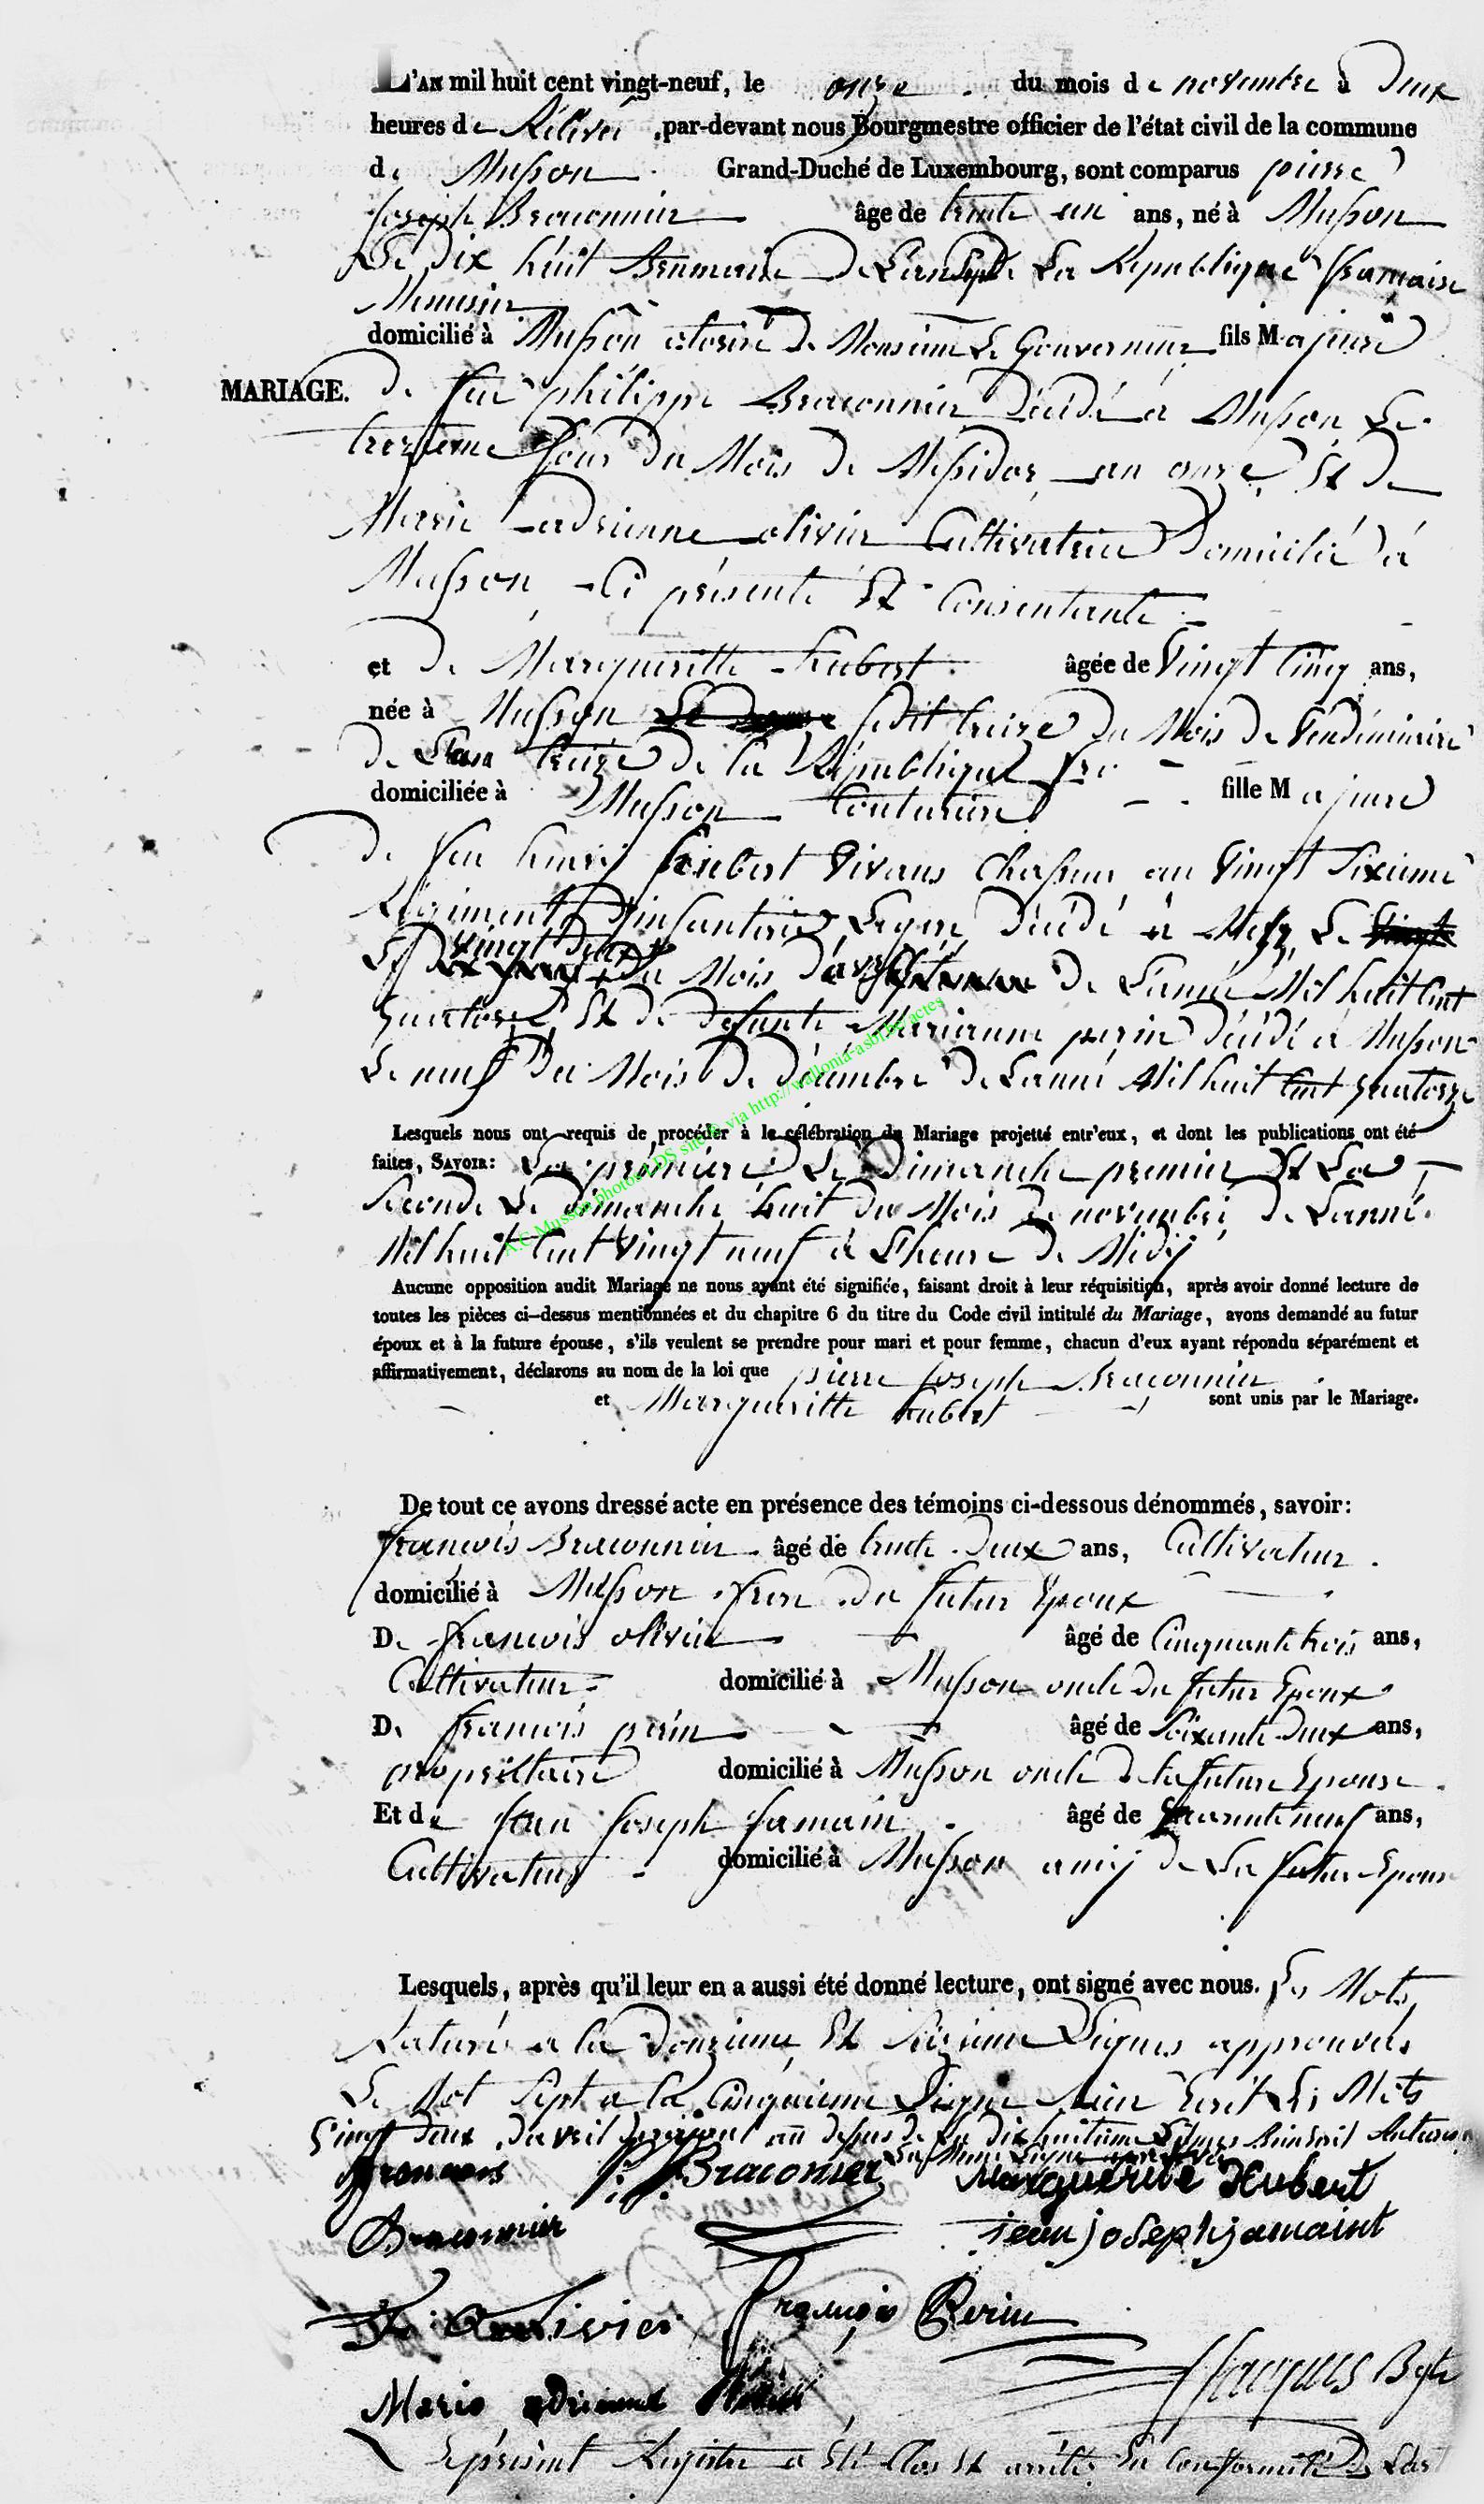 L'AN mil huit cent vingt-neuf, le onze du mois de novembre à Deux
heures de Rélivé, par-devant nous Bourgmestre officier de l'état civil de la commune
de Musson Grand-Duché de Luxembourg, sont comparus pierre
Joseph Braconnier âge de trente un ans, né à Musson
Le Dix huit Brumaire De L'an Sept De La Republique francaise
Menusier
domicilié à Musson De Monsieur Le Gouverneur fils Majeur
MARIAGE.
De feu philippe Braconnier Décédé à Musson Le
treizieme Jour Du Mois De Messidor an onze, Et De
Marie adrienne olivier Cultivatrice Domicilié à
Musson Ci présente Et Consentante
et De Margueritte hubert âgée de Vingt Cinq ans,
née à Musson Le treize Du Mois De Vendémiaire
De L'an treize De la République fre
domiciliée à Musson Couturiere fille Majeure
De feu henry hubert Vivans Chasseur au Vingt Sixieme
Régiment D'infanterie Legere Décédé à Metz Le Vingt
Vingt Deux
Et Du Mois D'avril De L'année Mil huit Cent
quatorze, Et De Defunte Marianne perin Décédé à Musson
Le neuf Du Mois De Décembre De L'année Mil huit Cent quatorze
Lesquels nous ont requis de procéder à la célébration du Mariage projetté entr'eux, et dont les publications ont été
faites, SAVOIR: La prémiere Le Dimanche premier Et La
Seconde Le Dimanche huit Du Mois De novembre De L'année
Mil huit Cent Vingt neuf à L'heure De Midy
A.C Musson photos LDS site © via http://wallonia-asbl.be/actes
Aucune opposition audit Mariage ne nous ayant été signifiée, faisant droit à leur réquisition, après avoir donné lecture de
toutes les pièces ci-dessus mentionnées et du chapitre 6 du titre du Code civil intitulé du Mariage, avons demandé au futur
époux et à la future épouse, s'ils veulent se prendre pour mari et pour femme, chacun d'eux ayant répondu séparément et
affirmativement, déclarons au nom de la loi que pierre Joseph Braconnier
et Margueritte hubert sont unis par le Mariage.
De tout ce avons dressé acte en présence des témoins ci-dessous dénommés, savoir:
francois Braconnier âgé de trente Deux ans, Cultivateur
domicilié à Musson frere Du futur Epoux
De francois olivier âgé de Cinquante trois ans,
Cultivateur domicilié à Musson oncle Du futur Epoux
De francois perin âgé de Soixante Deux ans,
propriétaire domicilié à Musson oncle De la future Epouse
Et de Jean Joseph Jamain âgé de quarante neuf ans,
Cultivateur domicilié à Musson amij De La future Epouse
Lesquels, après qu'il leur en a aussi été donné lecture, ont signé avec nous. Les Mots
Raturé a la Douzieme Et Seizieme Lignes approuvés
Le Mot Sept a la Cinquieme Ligne Bien Ecrit Les Mots
Vingt Deux D'avril au Dessus De La Dixhuitieme Lignes
francois P. J. Braconier Marguerite Hubert
Braconnier jean joseph jamaint
F. Olivier François Perin
Marie adrienne olivier Jacques
Le présent Registre a été Clos Et arrêté En Conformité De L'art